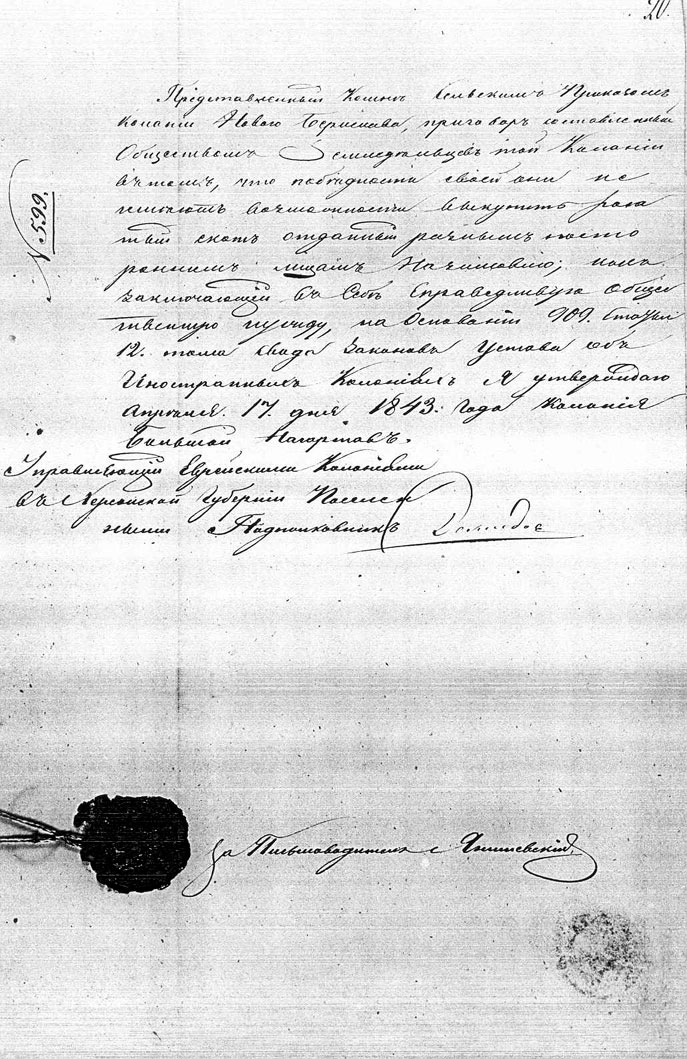 20.
Представленный мнѣ Сельскимъ Приказомъ
колоніи Новаго Берислава, приговоръ составленный
Обществомъ Земледѣльцевъ той Колоніи
въ томъ, что по бѣдности своей они не
имѣютъ возможности выкупить рога
тый скотъ отданный разнымъ посто
роннимъ лицамъ
заключающій въ Себѣ Справедливую Общес
твенную нужду, на Основаніи 909. Статьи
12. тома Свода Законовъ Устава объ
Иностранныхъ Колоніяхъ Я утверждаю
Апрѣля 17. дня 1843. года Колонія
Большой Нагартавъ.
№ 599.
Управляющій Еврейскими Колоніями
въ Херсонской Губерніи Поселен
ными Подполковникъ
За Письмоводителя